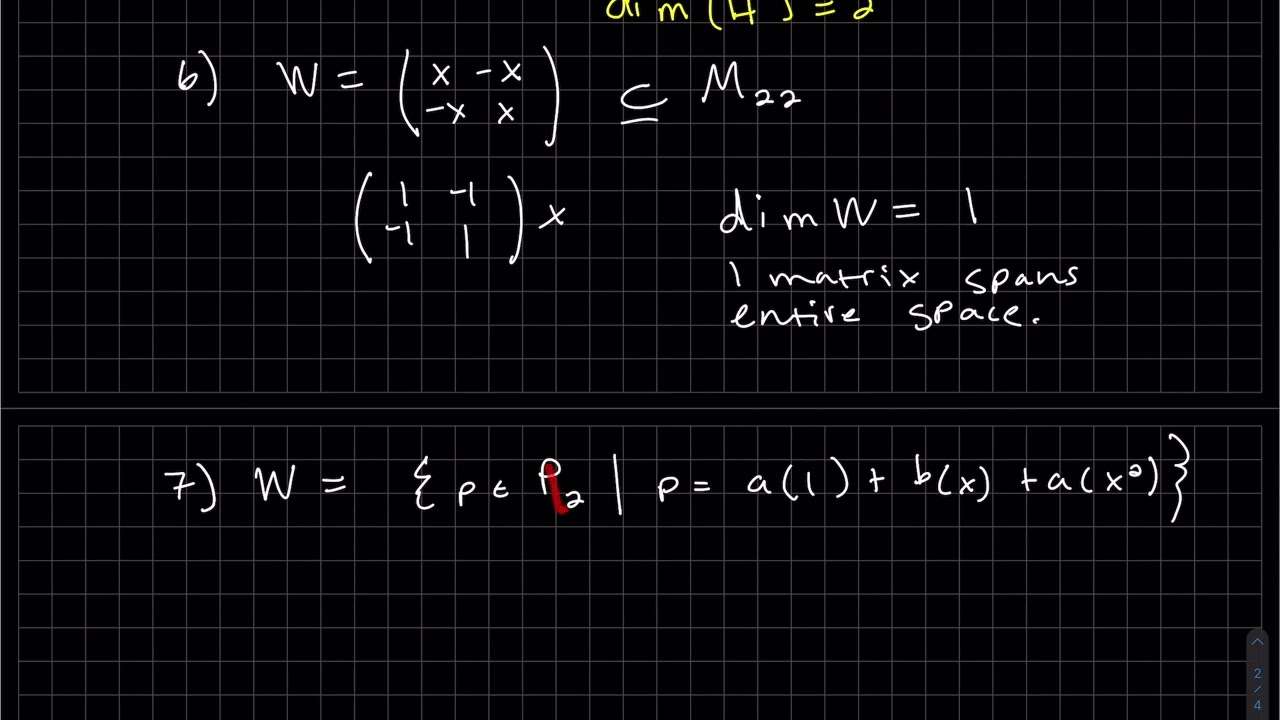 dim(H) = 2
6) W = ( x -x ⊆ M₂₂
-x x )
( 1 -1 ) x dim W = 1
-1 1
1 matrix spans
entire space.
7) W = { p ∈ P₂ | p = a(1) + b(x) + a(x²) }
2
/
4